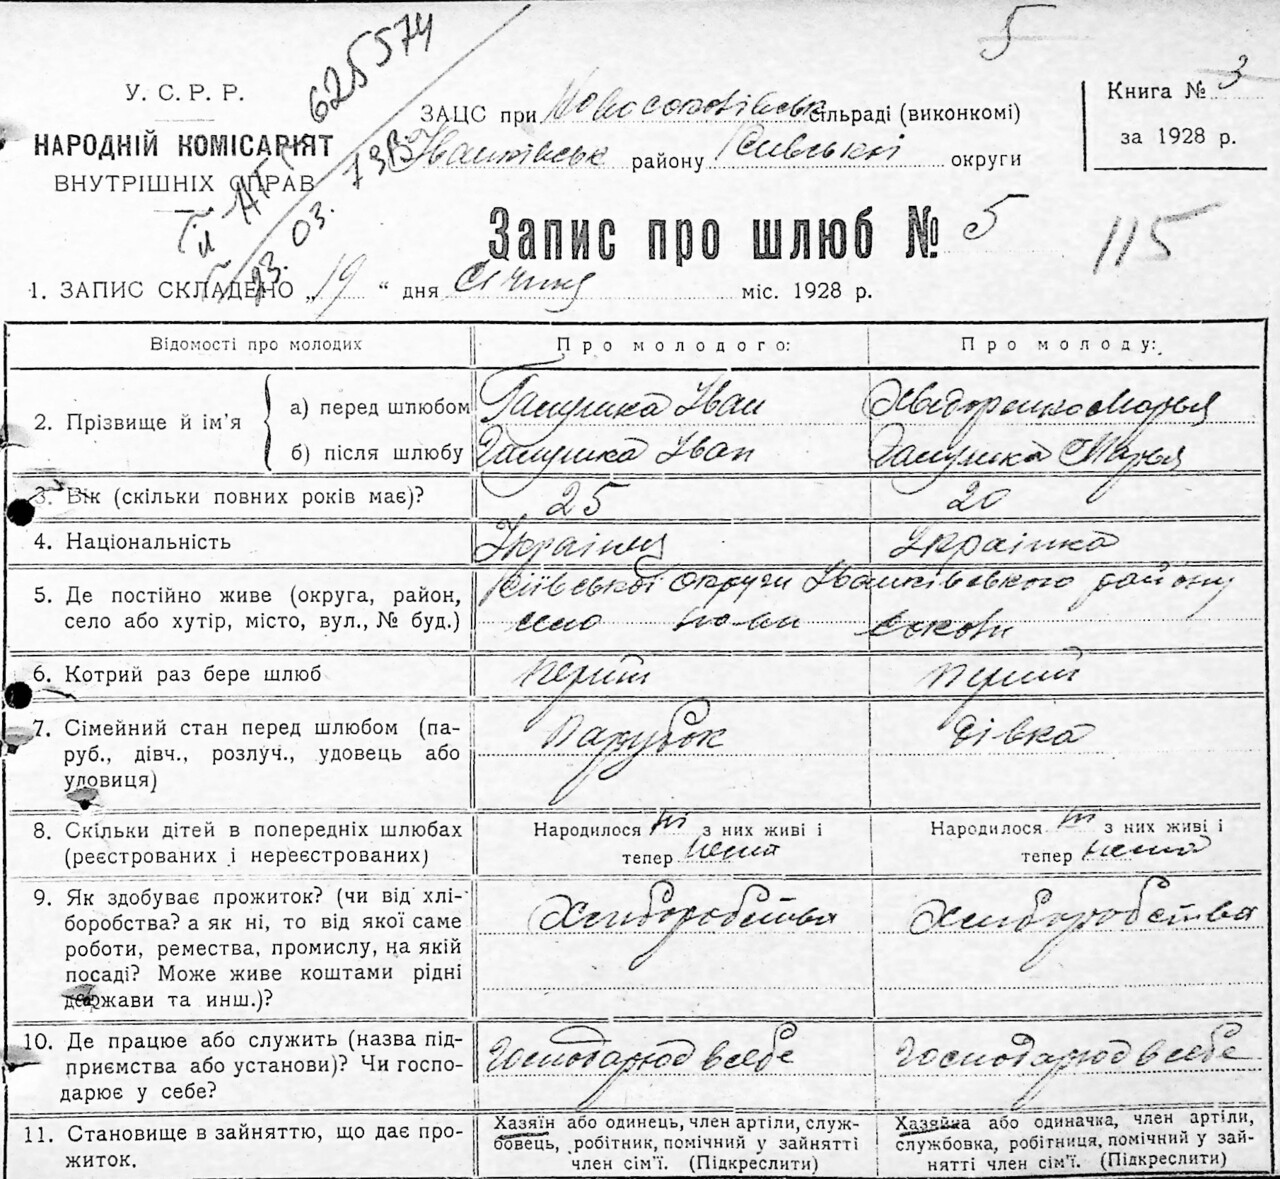 5
625574
У. С. Р. Р.
НАРОДНІЙ КОМІСАРІЯТ
ВНУТРІШНІХ СПРАВ
13. 03. 73
ЗАЦС при Новосоковівськ сільраді (виконкомі)
Іванківськ району Київської округи
Книга № 3
за 1928 р.
Запис про шлюб № 5
115
1. ЗАПИС СКЛАДЕНО „ 19 “ дня січня міс. 1928 р.
Відомості про молодих
Про молодого:
Про молоду:
2. Прізвище й ім'я
а) перед шлюбом Галушка Іван Хведоренко Марья
б) після шлюбу Галушка Іван Галушка Марья
3. Вік (скільки повних років має)? 25 20
4. Національність Українец Українка
5. Де постійно живе (округа, район, Київської округи Іванківського району
село або хутір, місто, вул., № буд.) село нови соколи
6. Котрий раз бере шлюб перший перший
7. Сімейний стан перед шлюбом (па-
руб., дівч., розлуч., удовець або Парубок дівка
удовиця)
8. Скільки дітей в попередніх шлюбах Народилося ні з них живі і Народилося ні з них живі і
(реєстрованих і нереєстрованих) тепер нема тепер нема
9. Як здобуває прожиток? (чи від хлі-
боробства? а як ні, то від якої саме Хлиборобства Хлиборобства
роботи, ремества, промислу, на якій
посаді? Може живе коштами рідні
держави та инш.)?
10. Де працює або служить (назва під-
приємства або установи)? Чи госпо- Господарюэ в себе Господарюэ в себе
дарює у себе?
11. Становище в зайняттю, що дає про-
житок.
Хазяїн або одинець, член артілі, служ-
бовець, робітник, помічний у зайнятті
член сім'ї. (Підкреслити)
Хазяйка або одиначка, член артіли,
службовка, робітниця, помічний у зай-
нятті член сім'ї. (Підкреслити)